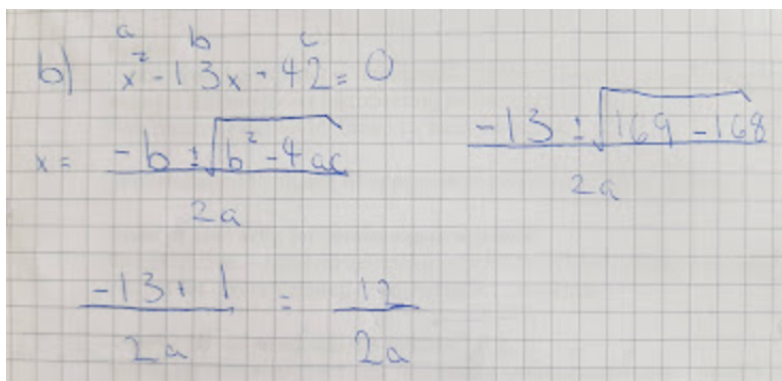 a b c
b) x² - 13x - 42 = 0
x = (-b ± √(b² - 4ac)) / 2a
(-13 ± √(169 - 168)) / 2a
(-13 + 1) / 2a = 12 / 2a